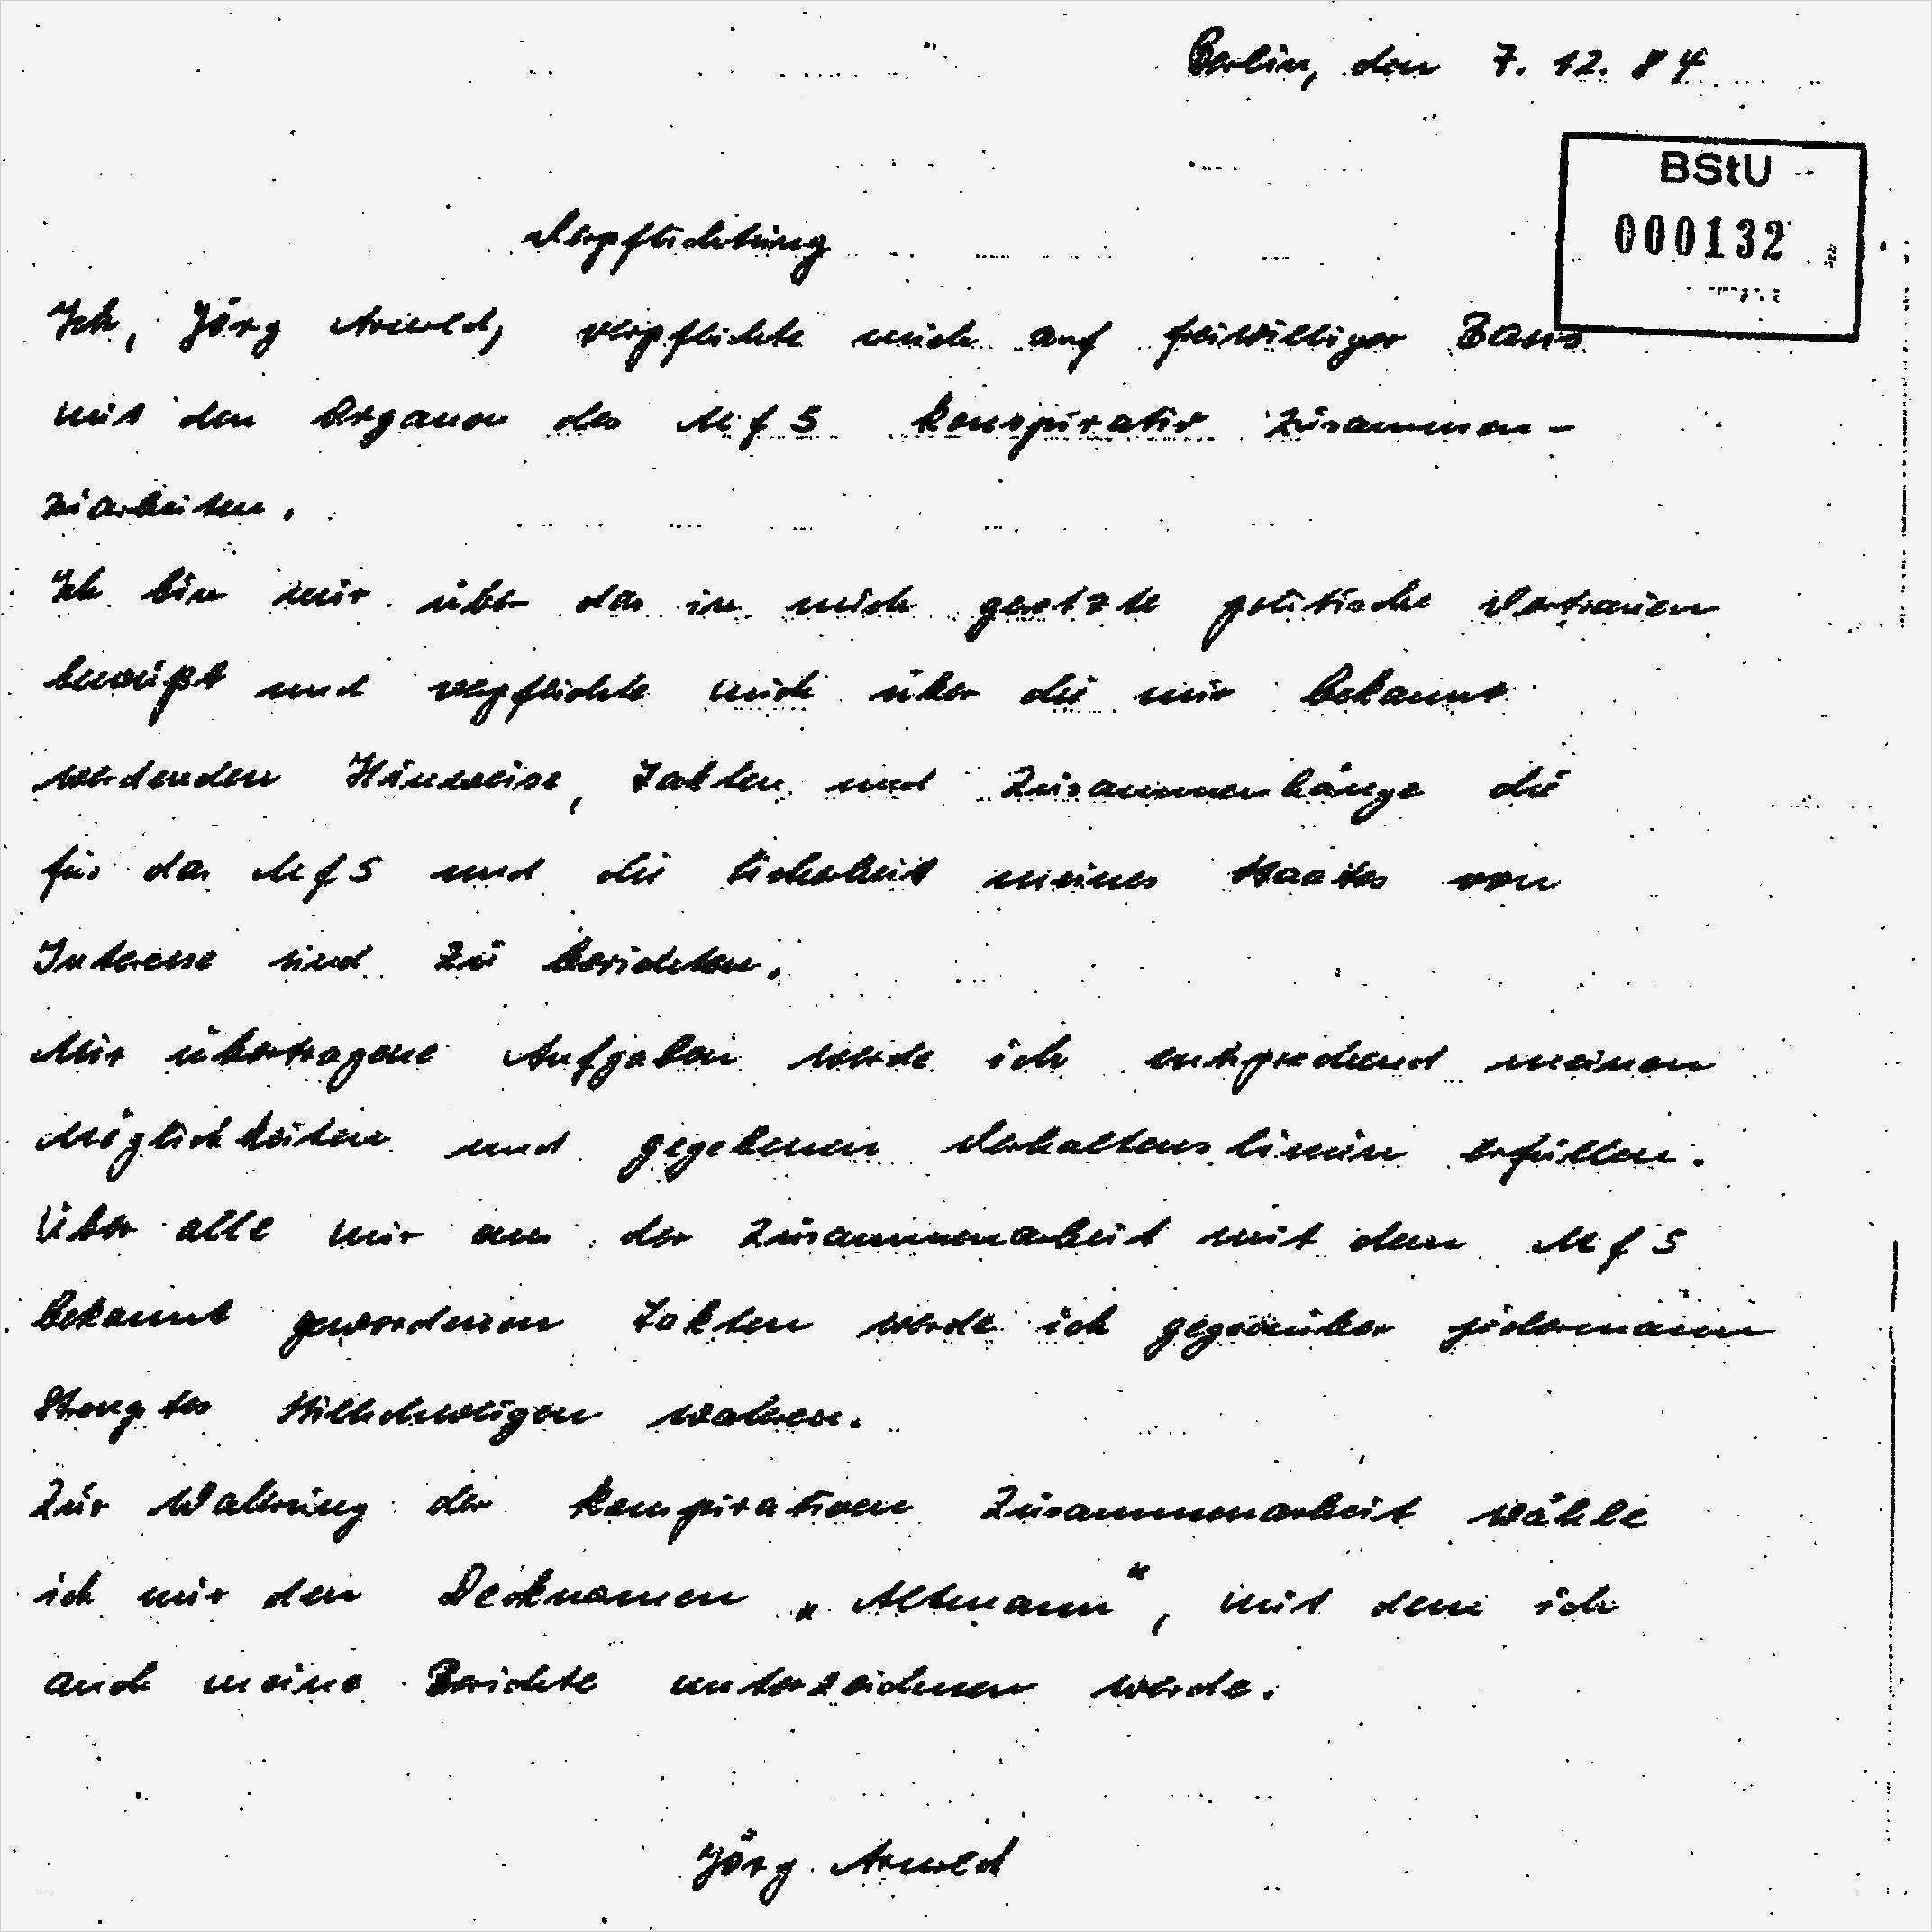 Berlin, den 7. 12. 84
BStU
000132
Verpflichtung
Ich, Jörg Arnold, verpflichte mich auf freiwilliger Basis
mit den Organen des MfS konspirativ zusammen-
zuarbeiten.
Ich bin mir über das in mich gesetzte politische Vertrauen
bewußt und verpflichte mich über die mir bekannt
werdenden Hinweise, Fakten und Zusammenhänge die
für das MfS und die Sicherheit meines Staates von
Interesse sind zu berichten.
Mir übertragene Aufgaben werde ich entsprechend meinen
Möglichkeiten und gegebenen Verhaltenslinien erfüllen.
Über alle mir aus der Zusammenarbeit mit dem MfS
bekannt gewordenen Fakten werde ich gegenüber jedermann
Strengstes Stillschweigen wahren.
Zur Wahrung der konspirativen Zusammenarbeit wähle
ich mir den Decknamen „Altmann“, mit dem ich
auch meine Berichte unterzeichnen werde.
Jörg Arnold